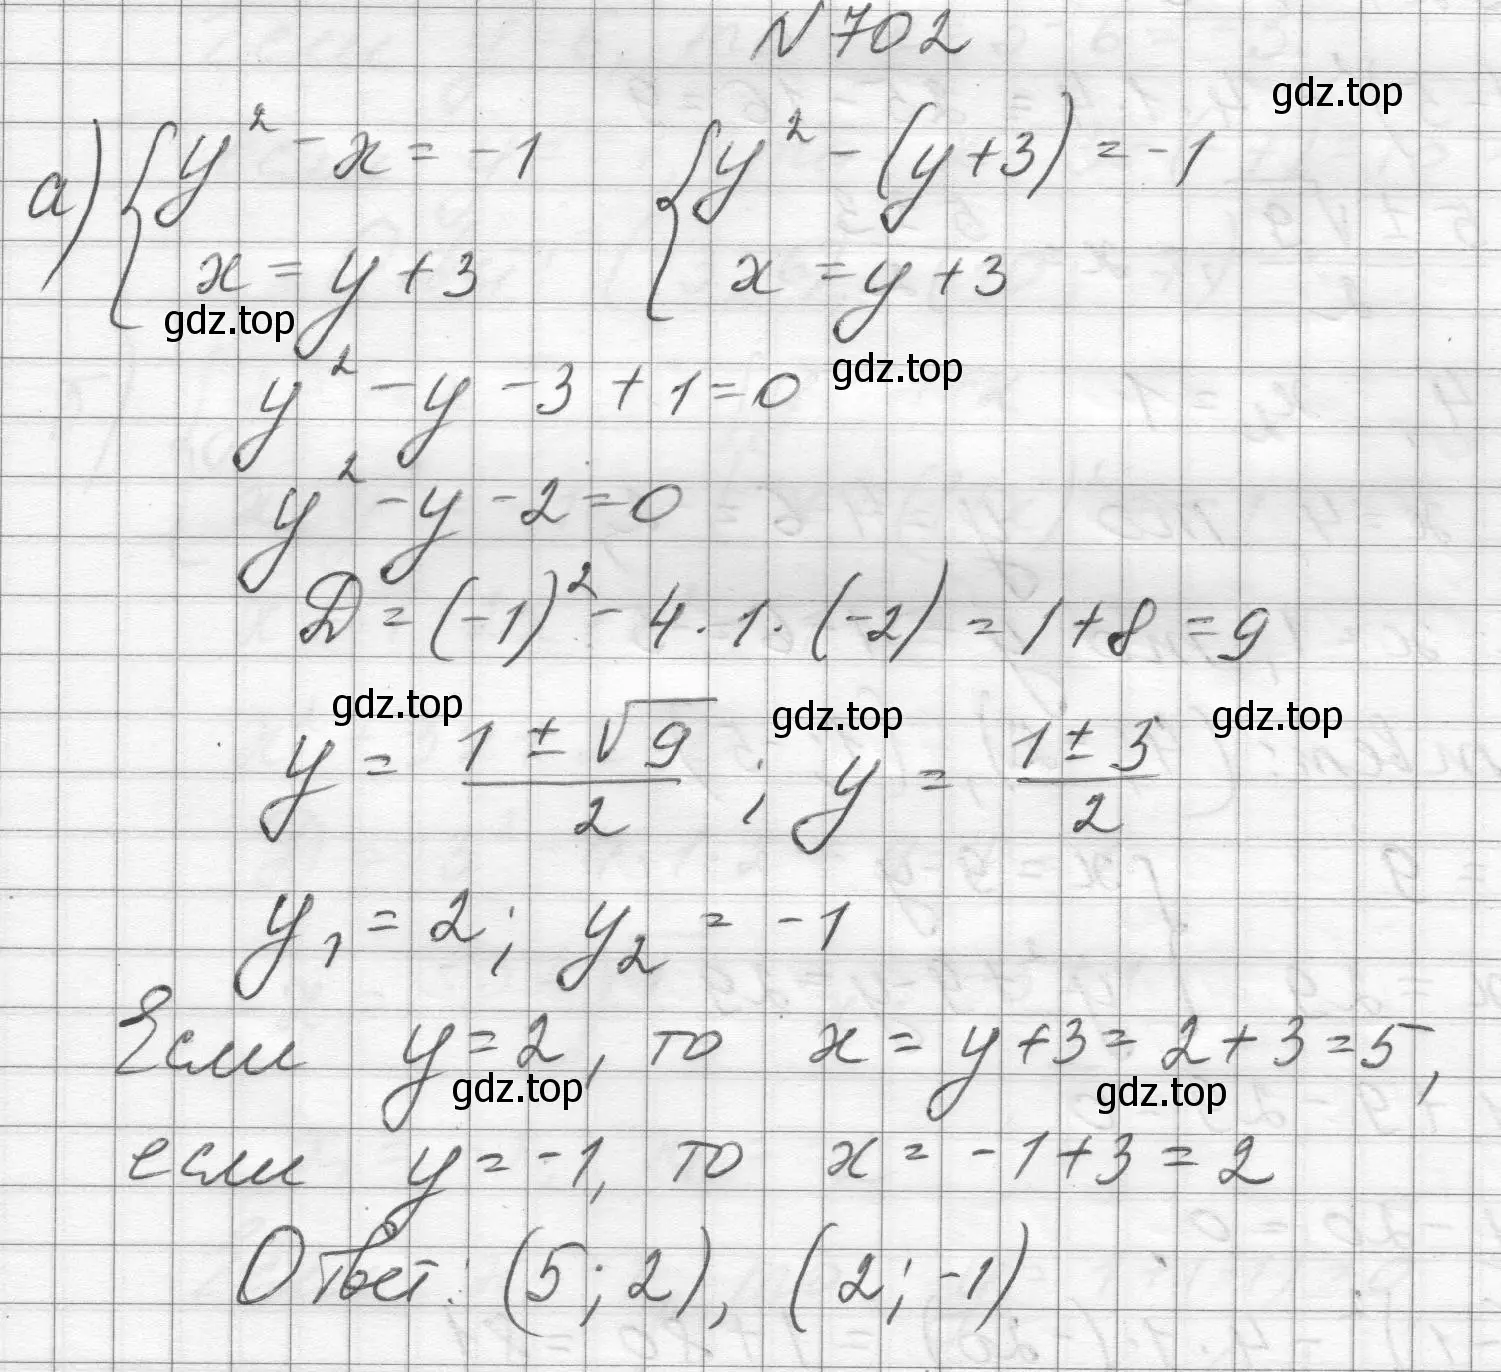 N 702
gdz.top
а) { y² - x = -1 { y² - (y+3) = -1
x = y + 3 x = y + 3
gdz.top gdz.top
y² - y - 3 + 1 = 0
y² - y - 2 = 0
D = (-1)² - 4 · 1 · (-2) = 1 + 8 = 9
gdz.top gdz.top gdz.top
y = (1 ± √9)/2 ; y = (1 ± 3)/2
y₁ = 2; y₂ = -1
Если y = 2, то x = y + 3 = 2 + 3 = 5,
gdz.top gdz.top
если y = -1, то x = -1 + 3 = 2
Ответ: (5; 2), (2; -1)